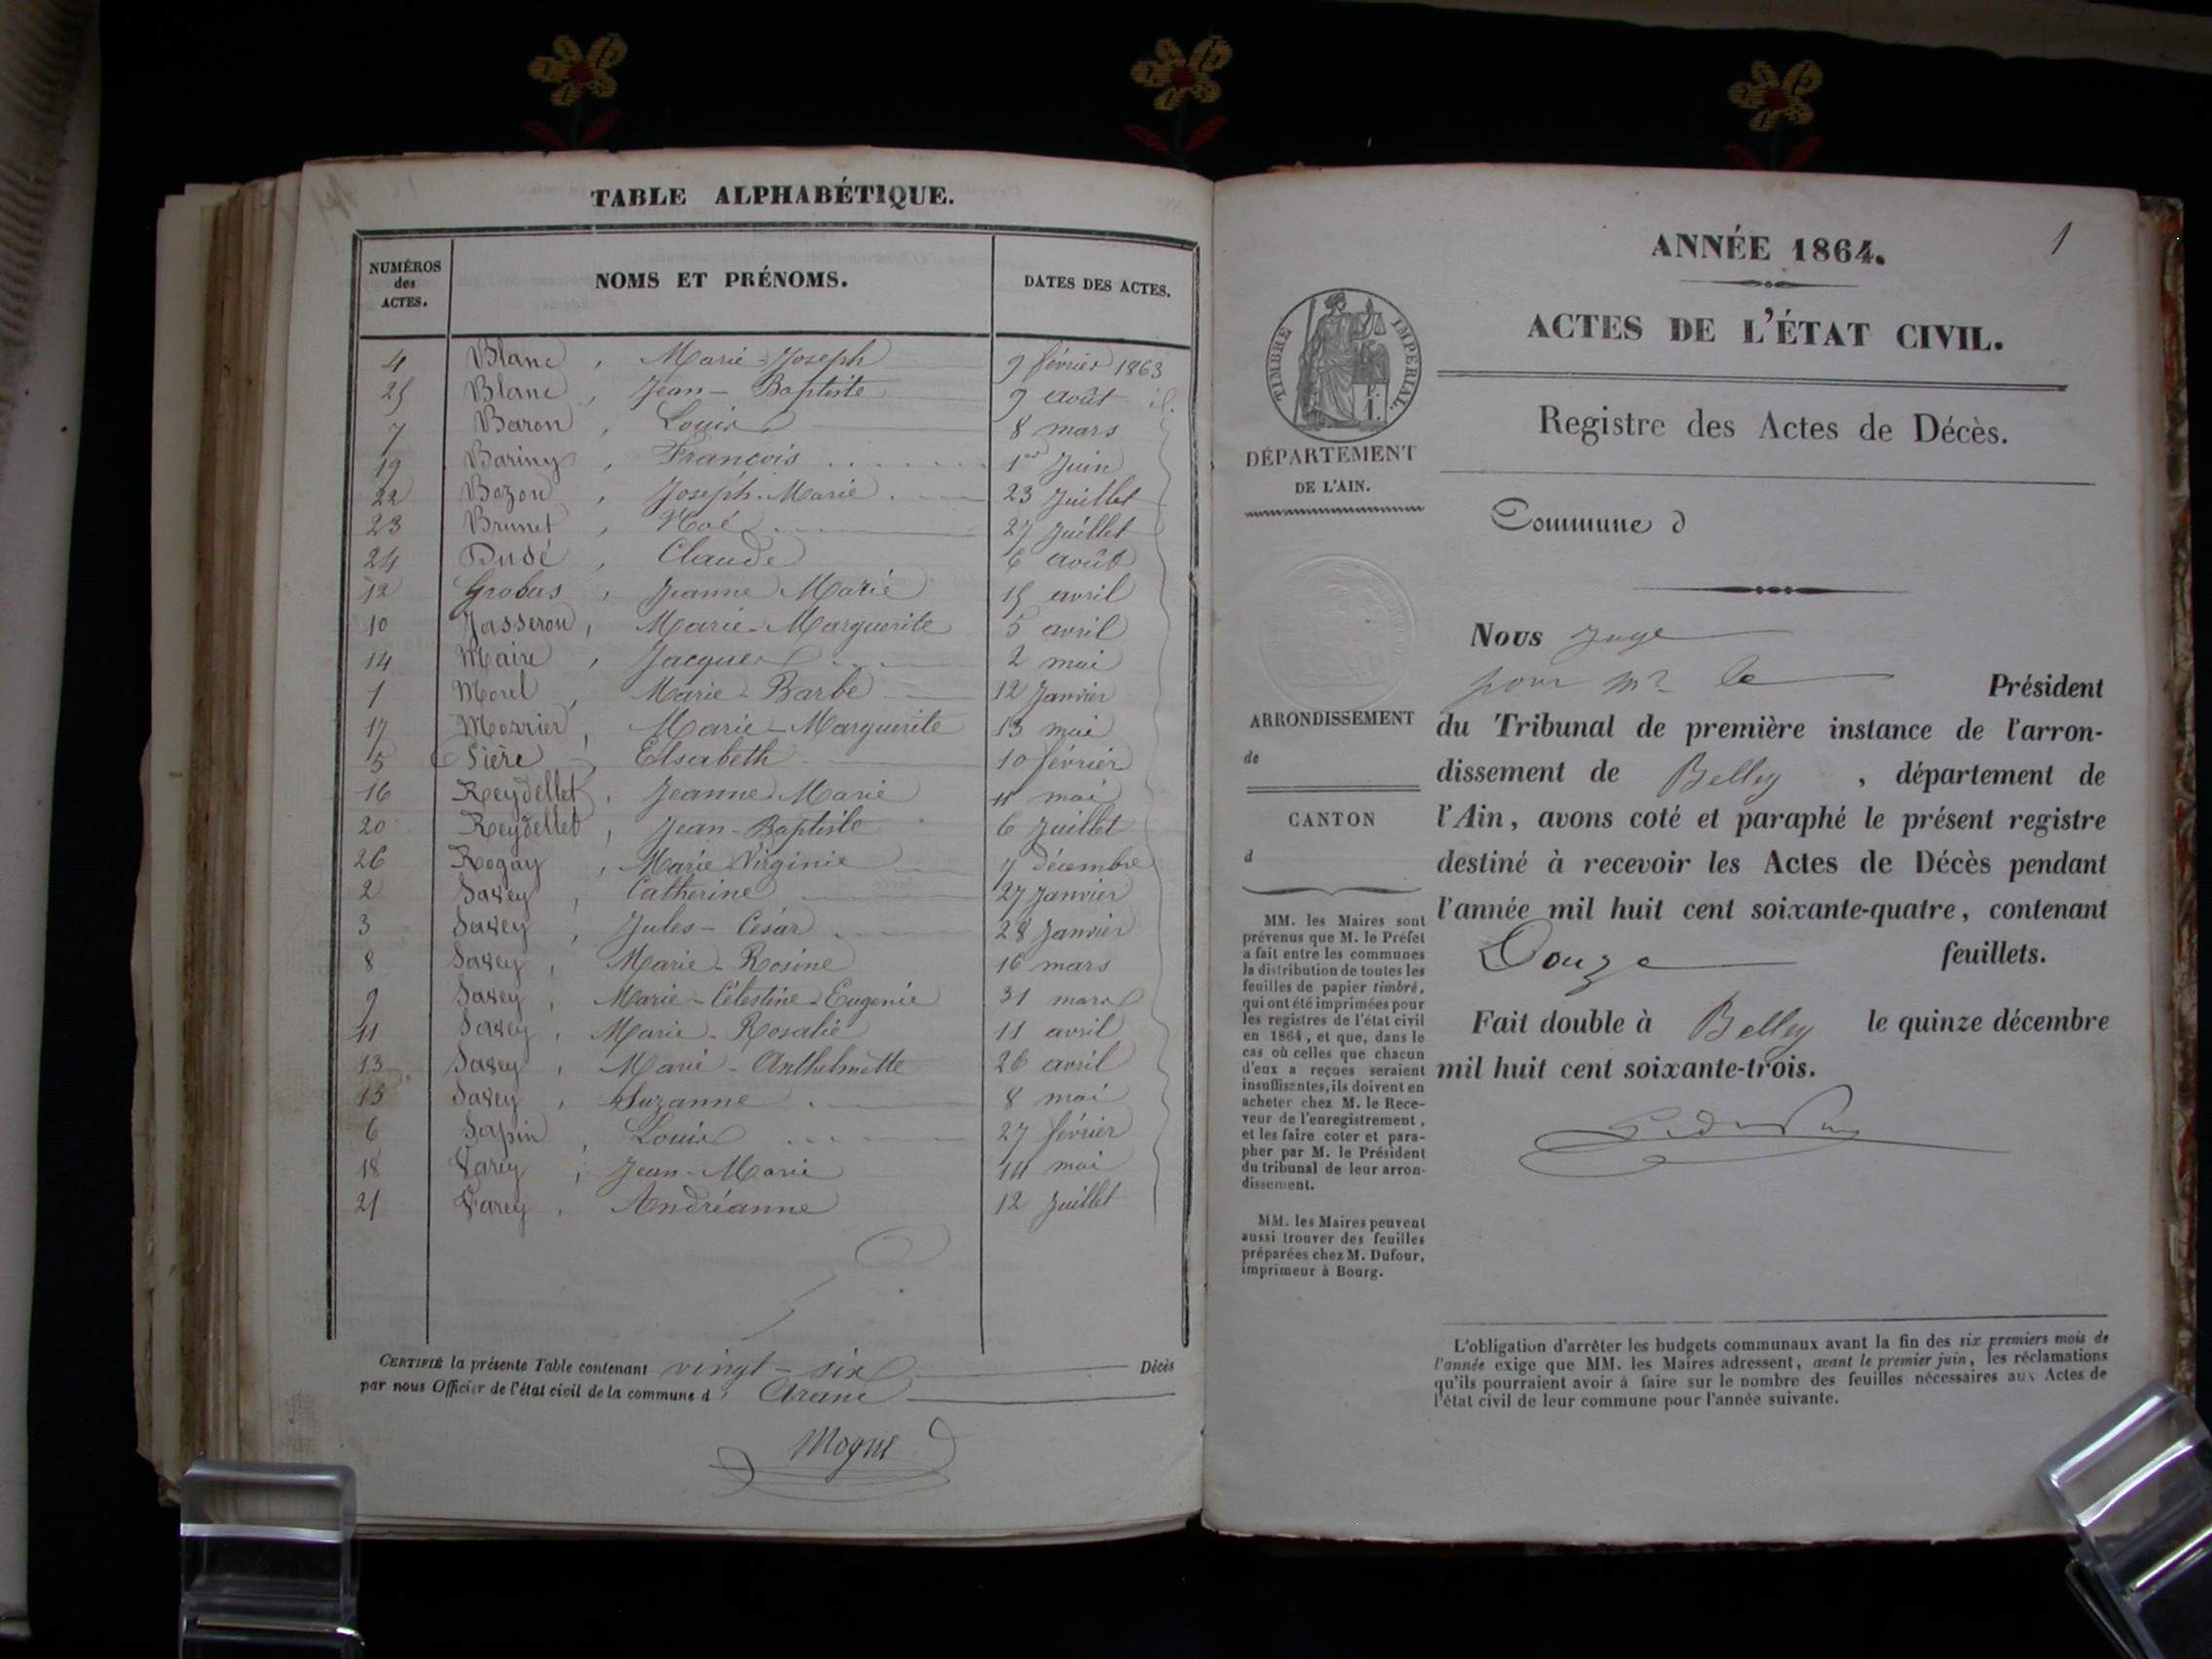 TABLE ALPHABÉTIQUE.
NUMÉROS des ACTES. NOMS ET PRÉNOMS. DATES DES ACTES.
4 Blanc, Marie-Joseph 9 février 1863
25 Blanc, Jean-Baptiste 9 août id.
7 Baron, Louis 8 mars
19 Bariny, François 1er Juin
22 Bozon, Joseph-Marie 23 Juillet
23 Brunet, Noé 27 Juillet
24 Dudé, Claude 6 août
12 Grobus, Jeanne Marie 15 avril
10 Jasseron, Marie-Marguerite 5 avril
14 Maire, Jacques 2 mai
1 Morel, Marie-Barbe 12 Janvier
17 Morrier, Marie-Marguerite 13 mai
5 Pière, Elisabeth 10 février
16 Reydellet, Jeanne Marie 11 mai
20 Reydellet, Jean-Baptiste 6 Juillet
26 Rogay, Marie Virginie décembre
2 Savey, Catherine 27 Janvier
3 Savey, Jules-César 28 Janvier
8 Savey, Marie-Rosine 16 mars
9 Savey, Marie-Célestine-Eugenie 31 mars
11 Savey, Marie-Rosalie 11 avril
13 Savey, Marie-Anthelmette 26 avril
15 Savey, Suzanne 8 mai
6 Sapin, Louis 27 février
18 Varey, Jean-Marie 14 mai
21 Varey, Andréanne 12 Juillet
CERTIFIÉ la présente Table contenant vingt-six Décès
par nous Officier de l'état civil de la commune d'Aranc
Mogne
1
ANNÉE 1864.
ACTES DE L'ÉTAT CIVIL.
Registre des Actes de Décès.
TIMBRE IMPERIAL.
1.
DÉPARTEMENT
DE L'AIN.
Commune d
Nous Juge
pour Mr le Président
du Tribunal de première instance de l'arron-
dissement de Belley, département de
l'Ain, avons coté et paraphé le présent registre
destiné à recevoir les Actes de Décès pendant
l'année mil huit cent soixante-quatre, contenant
Douze feuillets.
Fait double à Belley le quinze décembre
mil huit cent soixante-trois.
ARRONDISSEMENT
de
CANTON
d
MM. les Maires sont
prévenus que M. le Préfet
a fait entre les communes
la distribution de toutes les
feuilles de papier timbré,
qui ont été imprimées pour
les registres de l'état civil
en 1864, et que, dans le
cas où celles que chacun
d'eux a reçues seraient
insuffisantes, ils doivent en
acheter chez M. le Rece-
veur de l'enregistrement,
et les faire coter et para-
pher par M. le Président
du tribunal de leur arron-
dissement.
MM. les Maires peuvent
aussi trouver des feuilles
préparées chez M. Dufour,
imprimeur à Bourg.
L'obligation d'arrêter les budgets communaux avant la fin des six premiers mois de
l'année exige que MM. les Maires adressent, avant le premier juin, les réclamations
qu'ils pourraient avoir à faire sur le nombre des feuilles nécessaires aux Actes de
l'état civil de leur commune pour l'année suivante.